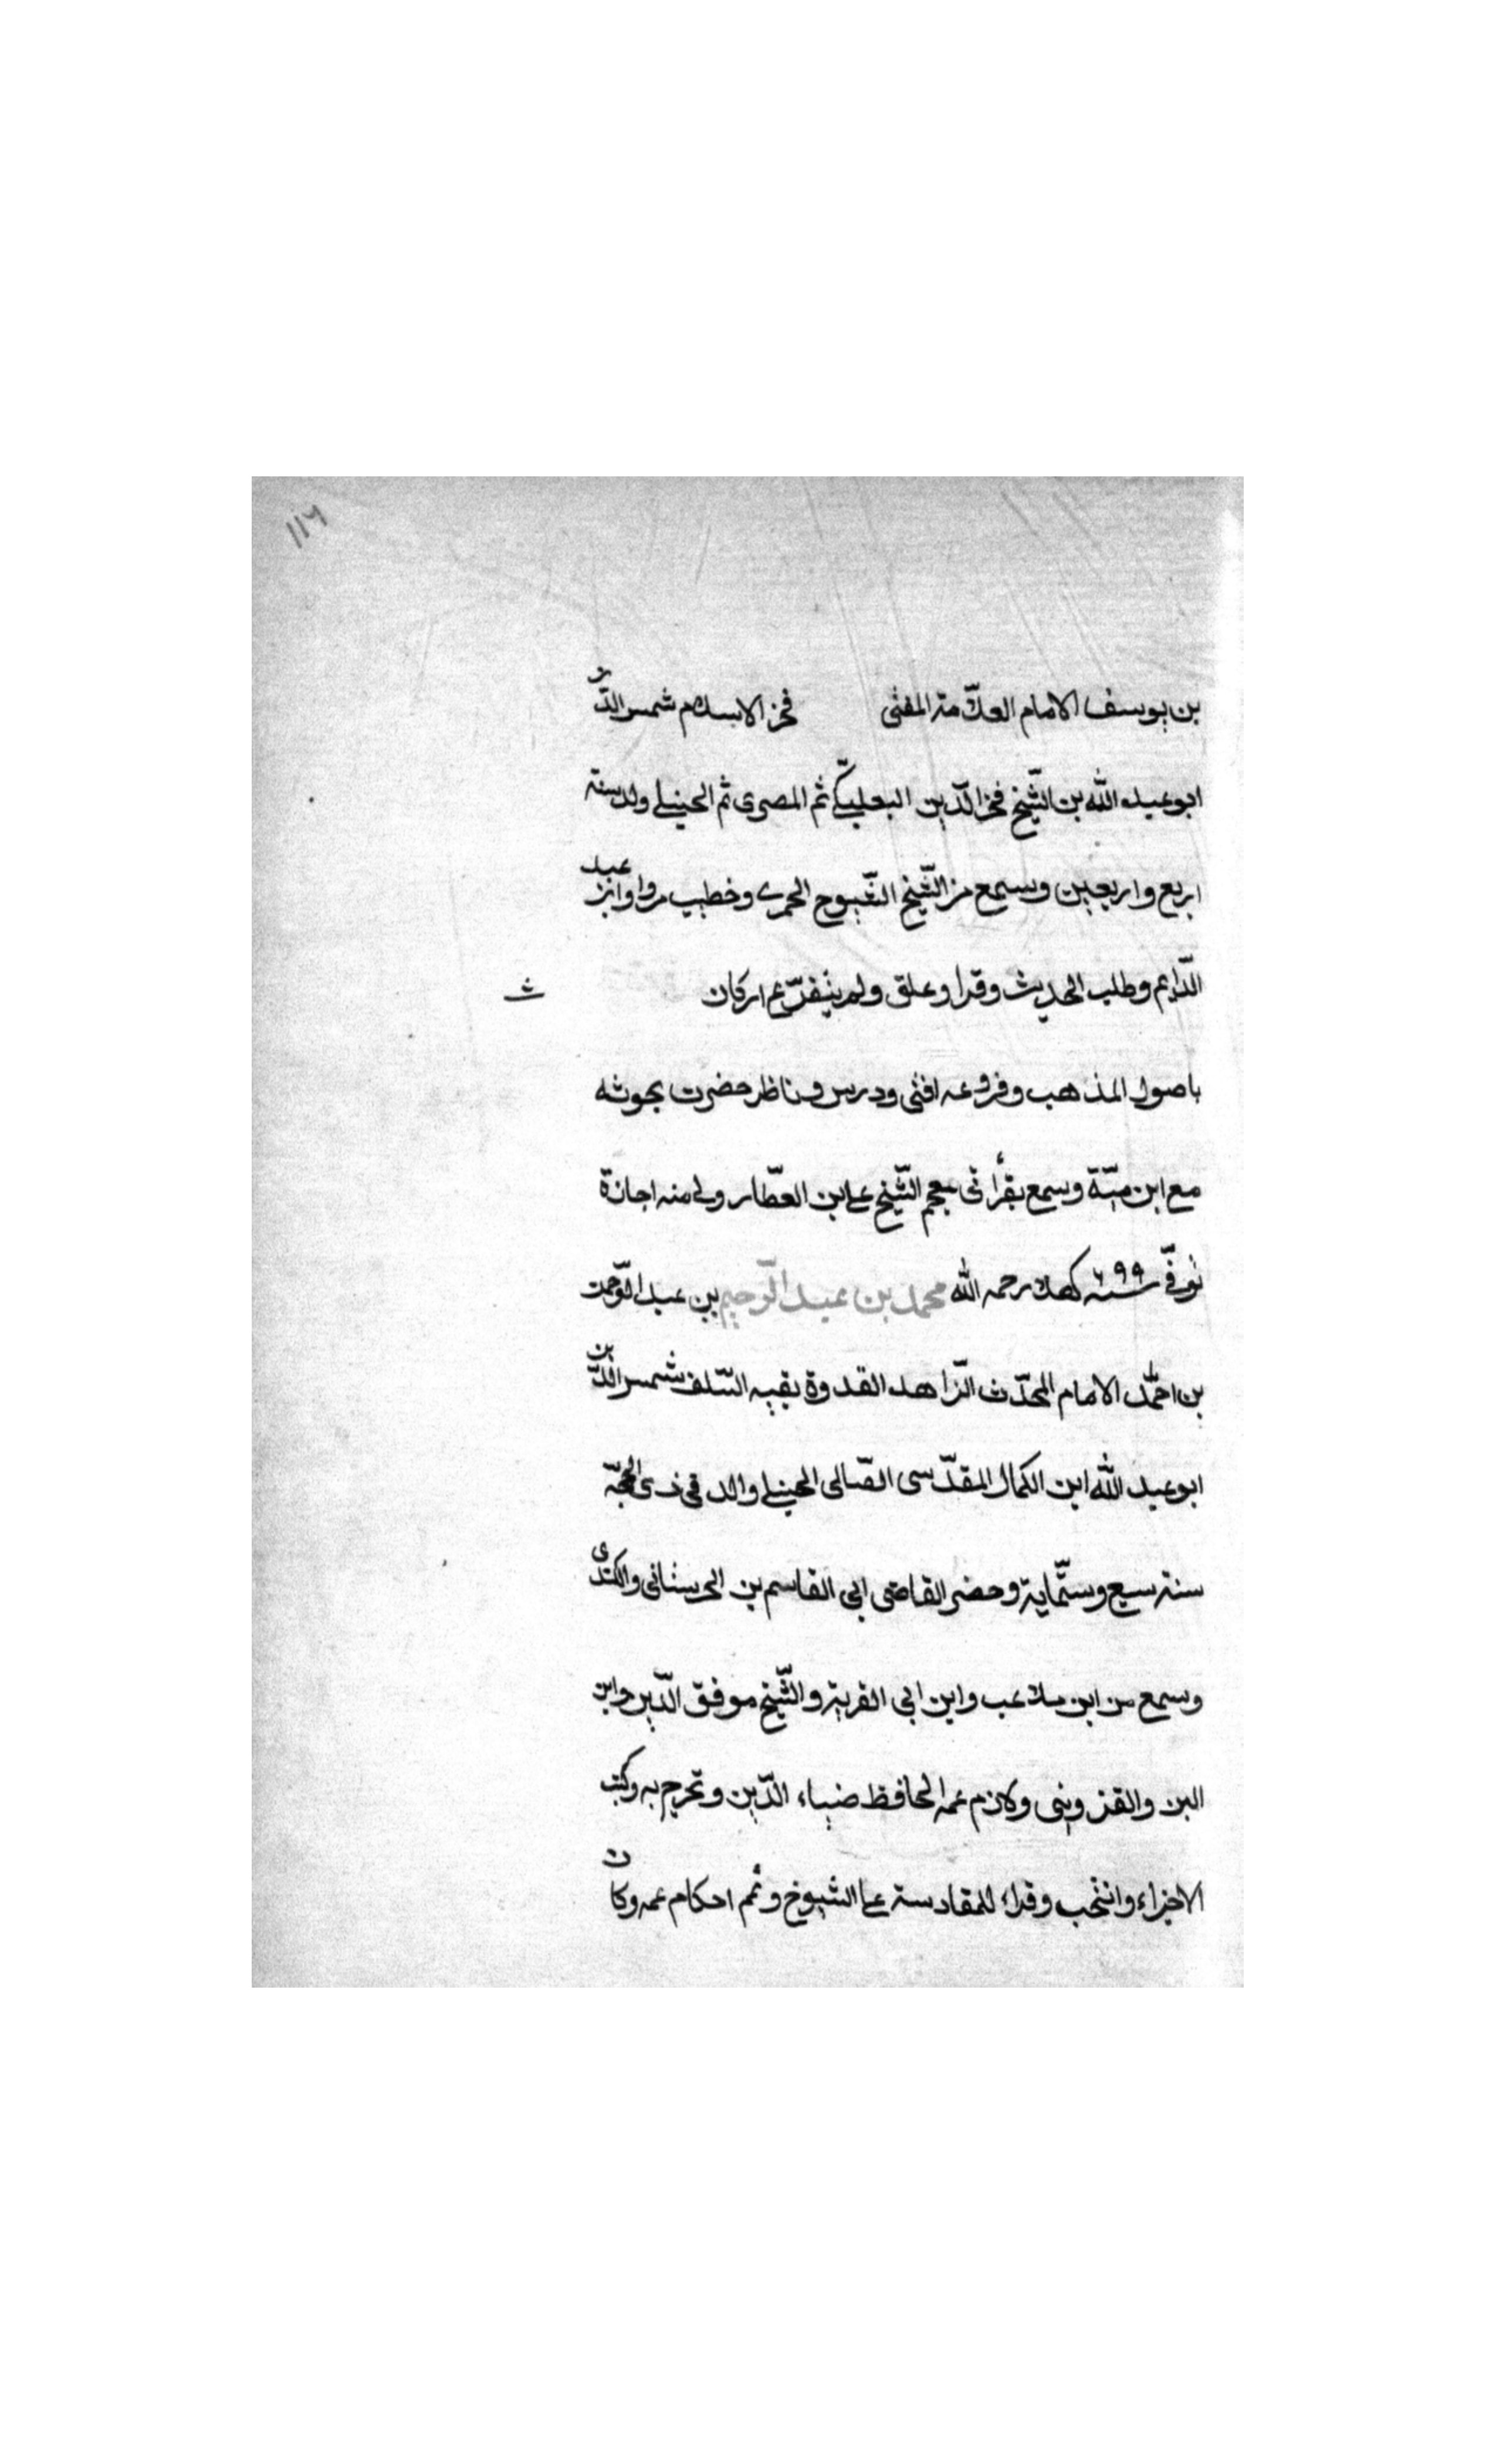 ١١٦
بن يوسف الامام العلّامة المفتى فخر الاسلام شمس الدّين
ابو عبد الله بن الشّيخ فخر الدّين البعلبكّى ثم المصرى ثم الحنبلى ولد سنة
اربع واربعين وسمع من الشّيخ وخطيب مردا وابن عبد
الدّايم وطلب الحديث وقرا وعلق ولم كان
باصول المذهب وفروعه افتى ودرس وناظر حضرت بحوثه
مع ابن وسمع بقرأتى معجم الشّيخ على ابن العطّار ولى منه اجازة
توفّى سنة ٦٩٩ كهلا رحمه الله محمد بن عبد الرّحيم بن عبد الوّحمن
بن احمّد الامام المحدّث الزّاهد القدوة بقيه السّلف شمس الدّين
ابو عبد الله ابن الكمال المقدّسى الصّالحى الحنبلى والد فى ذى الحجّة
سنة سبع وستّماية وحضر القاضى ابى القاسم بن الحرستانى والكندى
وسمع من ابن ملاعب وابن ابى القرية والشّيخ موفق الدّين وابن
البن والقزوينى ولازم عمه الحافظ ضياء الدّين وتخرج به وكتب
الاجزاء وانتخب وقراء للمقادسة على الشيوخ وتمم احكام عمه وكان